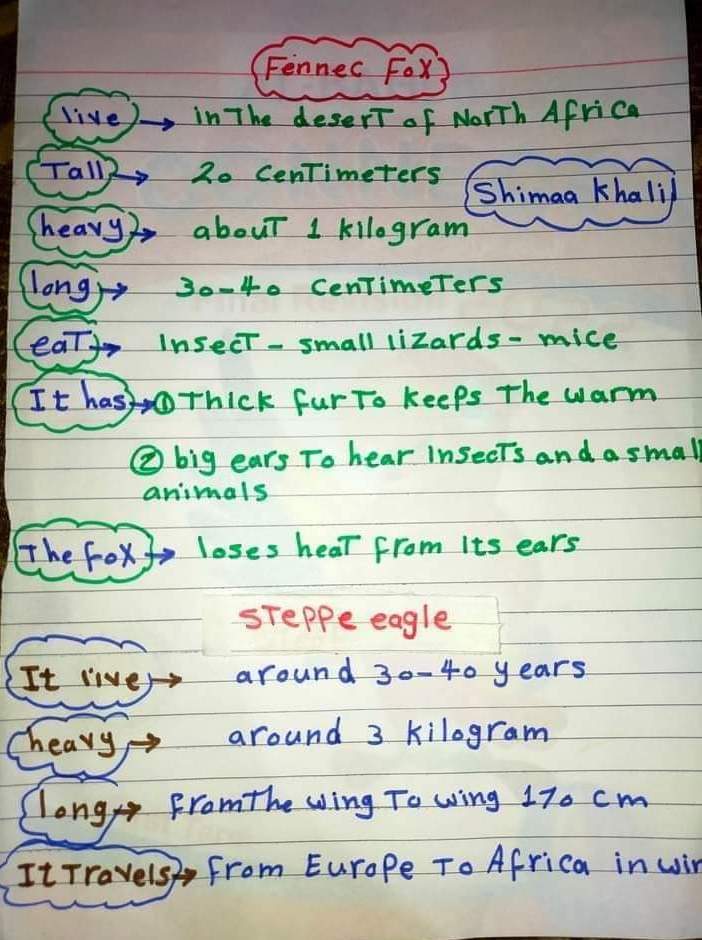 Fennec Fox
live → in The desert of North Africa
Tall → 20 centimeters
Shimaa Khalil
heavy → about 1 kilogram
long → 30-40 centimeters
eat → Insect - small lizards - mice
It has → ① Thick fur To keeps The warm
② big ears To hear insects and a small
animals
The fox → loses heat from its ears
Steppe eagle
It live → around 30-40 years
heavy → around 3 kilogram
long → from The wing To wing 170 cm
It Travels → from Europe To Africa in win